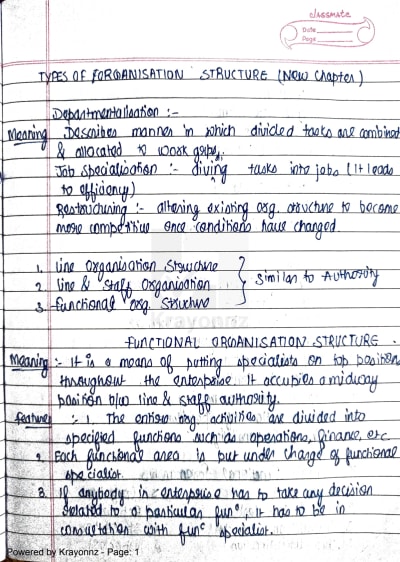 classmate
Date
Page
TYPES OF FORGANISATION STRUCTURE (New Chapter)
Departmentalisation :-
Meaning Describes manner in which divided tasks are combined
& allocated to work grps,
Job specialisation :- diving tasks into jobs (It leads
to efficiency)
Restructuring :- altering existing org. structure to become
more competitive once conditions have changed.
1. line Organisation Structure
2. line & Staff Organisation
3. functional org. Structure
Similar to Authority
Krayonnz
FUNCTIONAL ORGANISATION STRUCTURE.
Meaning :- It is a means of putting specialists on top position
throughout the enterprise. It occupies a midway
position b/w line & staff authority.
features :- 1. The entire org. activities are divided into
specified functions such as operations, finance, etc.
2. Each functional area is put under charge of functional
specialist.
3. If anybody in enterprise has to take any decision
related to a particular funⁿ, it has to be in
consultation with funⁿ specialist.
Powered by Krayonnz - Page: 1